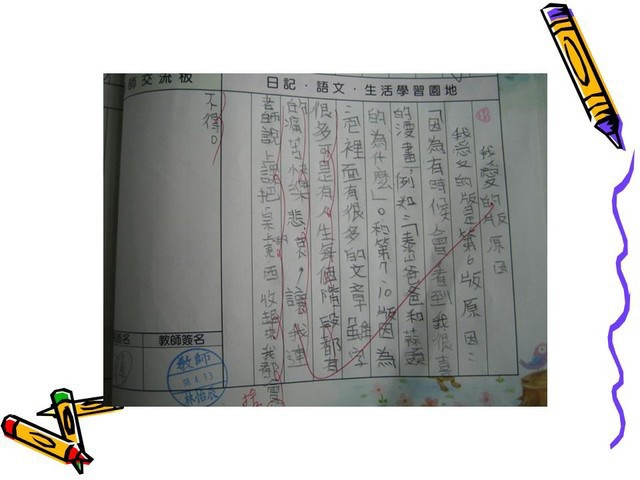 日記．語文．生活學習園地
我愛的版原因
我愛的版是第6版原因：
「因為有時候會看到我很喜
的漫畫，例如：「泰山爸爸和蒜頭
的為什麼」。和第7、10版因為
裡面有很多的文章雖字
很多可是有人生每個階段都有
的痛苦快樂悲哀，讓我連
老師說上課把桌的東西收起來我都
師交流板
不得。
教師簽名
教師
林怡辰